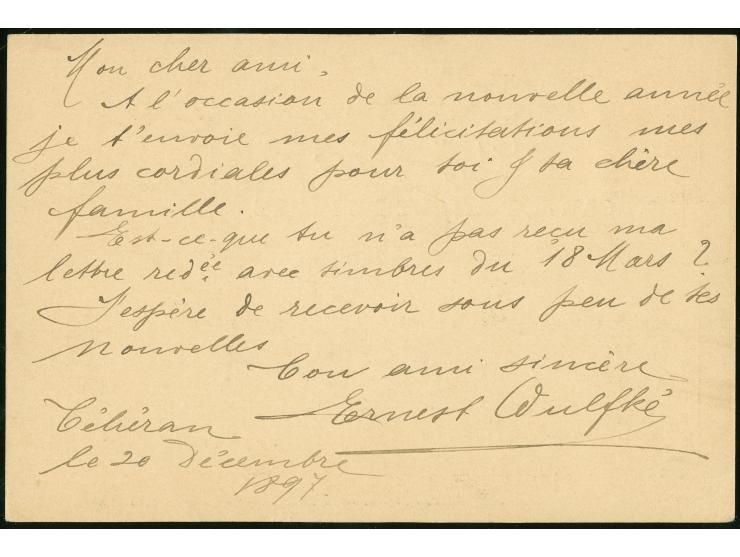 Mon cher ami,
A l'occasion de la nouvelle année
je t'envoie mes félicitations mes
plus cordiales pour toi & ta chère
famille.
Est-ce-que tu n'a pas reçu ma
lettre redée avec timbres du 18 Mars ?
J'espère de recevoir sous peu de tes
nouvelles
Ton ami sincère
Ernest Wulfké
Téhéran
le 20 Décembre
1897.